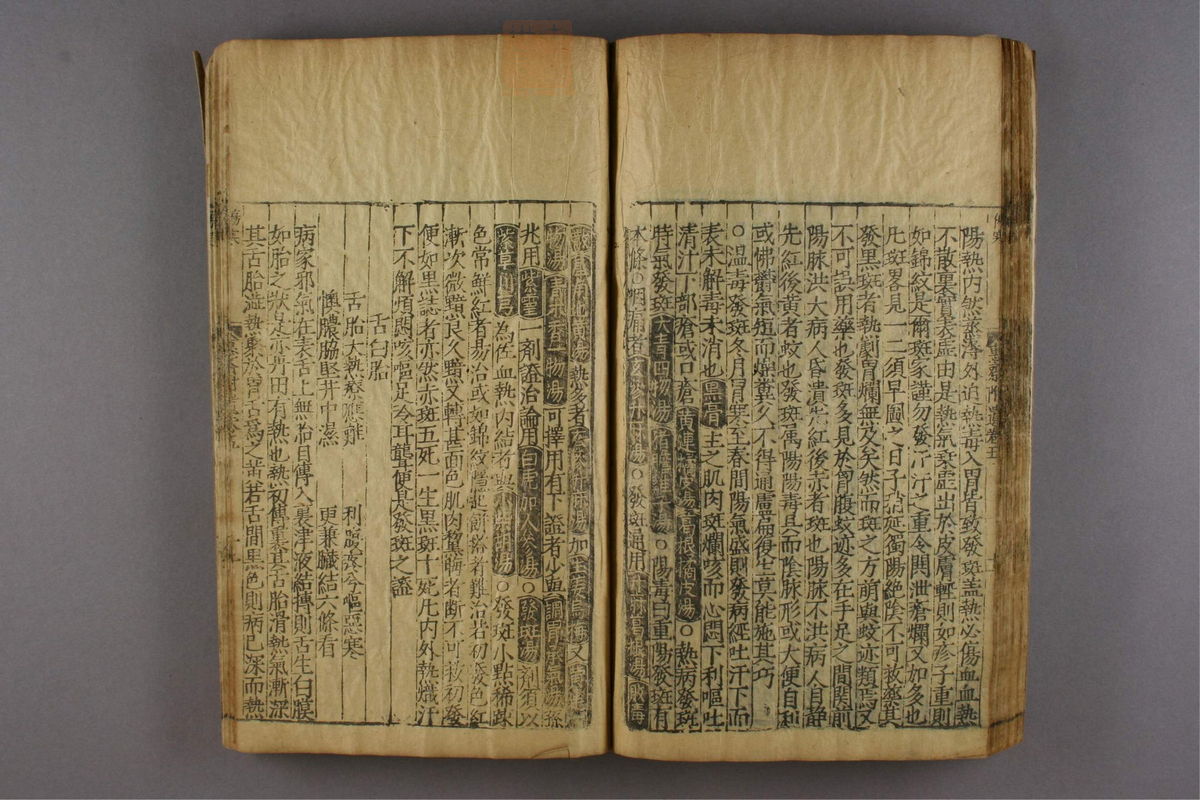 陽熱內然蒸薄外迫熱毒入胃皆致發斑盖熱必傷血血熱
不散裏實表虛由是熱氣乘虛出於皮膚輕則如疹子重則
如錦紋是爾斑家謹勿發汗汗之重令開泄瘡爛又如多也
凡斑畧見一二須早圖之日子稍延獨陽絕陰不可救藥其
發黑斑者熱劇胃爛無及矣然而斑之方萌與蚊迹類焉又
不可誤用藥也發斑多見於胃腹蚊迹多在手足之間闊前
陽脉洪大病人昏潰先紅後赤者斑也陽脉不洪病人自静
先紅後黄者蚊也發斑属陽陽毒具而陰脉形或大便自利
或怫鬱氣短而燥糞久不得通盧扁復生莫能施其巧
○温毒發斑冬月冒寒至春間陽氣盛則發病經吐汗下而
表未解毒未消也黑膏主之肌肉斑爛咳而心悶下利嘔吐
清汁丁部瘡或口瘡黄連橘皮湯葛根橘皮湯○熱病發斑
時氣發斑大青四物湯猪膽雞子湯○陽毒曰重陽發斑有
本條○咽痛者玄參升麻湯○發斑通用
熱多者加生薑烏梅又
物湯可擇用有下證者少與調胃承氣湯孫
兆用紫雪一剤證治論用白虎加人參湯○發斑湯剤須以
紫草茸爲佐血熱內結者與○發斑小點稀踈
色常鮮紅者易治或如錦紋隱起餅搭者難治若初發色紅
漸次微黯良久黯又轉甚面色肌肉黧晦者断不可救初發
便如黒誌者亦然赤斑五死一生黒斑十死凡內外熱熾汗
下不解煩悶咳嘔足冷耳聾便是發斑之證
舌白胎
舌胎大熱療應難 利腸疼兮嘔惡寒
懊憹脇堅并中濕 更兼臟結六條看
病家邪氣在表舌上無胎自傳入裏津液結搏則舌生白膜
如胎之狀是亦丹田有熱也熱初傳裏其舌胎滑熱氣漸深
其舌胎澁熱聚於胃舌爲之黄若舌間黒色則病已深而熱